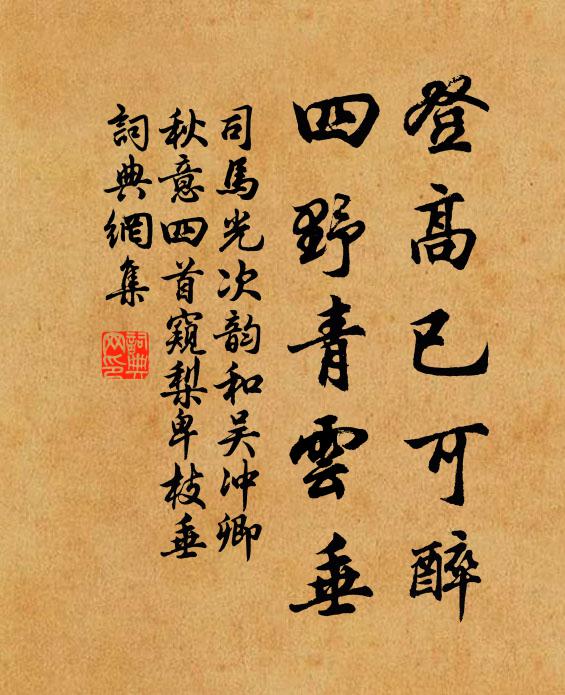 登高已可醉
四野青雲垂
司馬光次韵和吴冲卿
秋意四首窺梨卑枝垂
詞典網集
詞典网印